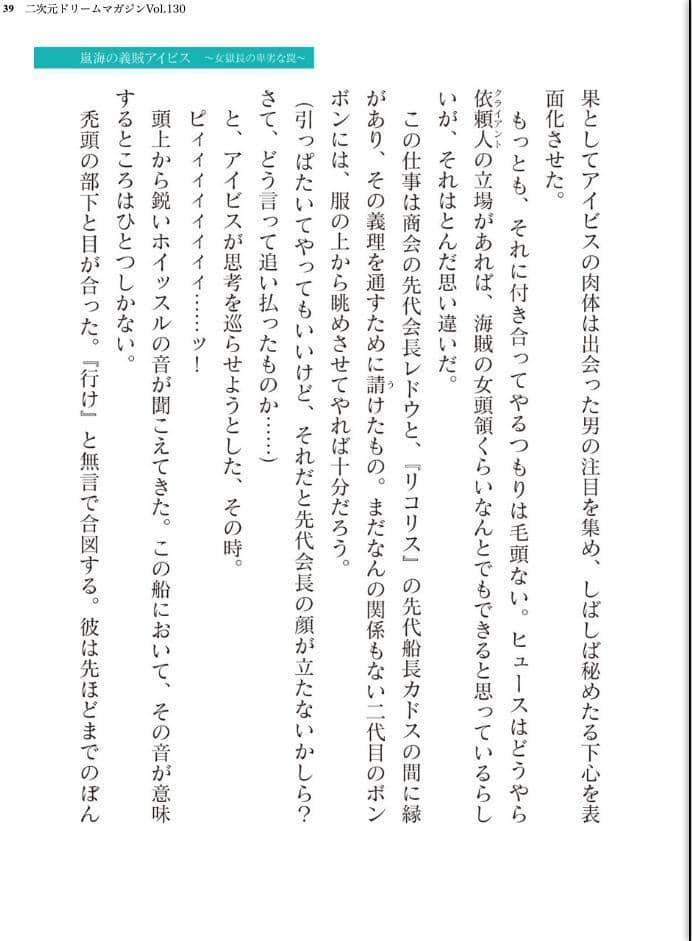 39 二次元ドリームマガジンVol.130
嵐海の義賊アイビス ～女獄長の卑劣な罠～
果としてアイビスの肉体は出会った男の注目を集め、しばしば秘めたる下心を表
面化させた。
もっとも、それに付き合ってやるつもりは毛頭ない。ヒュースはどうやら
クライアント
依頼人の立場があれば、海賊の女頭領くらいなんとでもできると思っているらし
いが、それはとんだ思い違いだ。
この仕事は商会の先代会長レドウと、『リコリス』の先代船長カドスの間に縁
があり、その義理を通すために請けたもの。まだなんの関係もない二代目のボン
う
ボンには、服の上から眺めさせてやれば十分だろう。
（引っぱたいてやってもいいけど、それだと先代会長の顔が立たないかしら？
さて、どう言って追い払ったものか……）
と、アイビスが思考を巡らせようとした、その時。
ピィィィィィィィ……ッ！
頭上から鋭いホイッスルの音が聞こえてきた。この船において、その音が意味
するところはひとつしかない。
禿頭の部下と目が合った。『行け』と無言で合図する。彼は先ほどまでのぼん